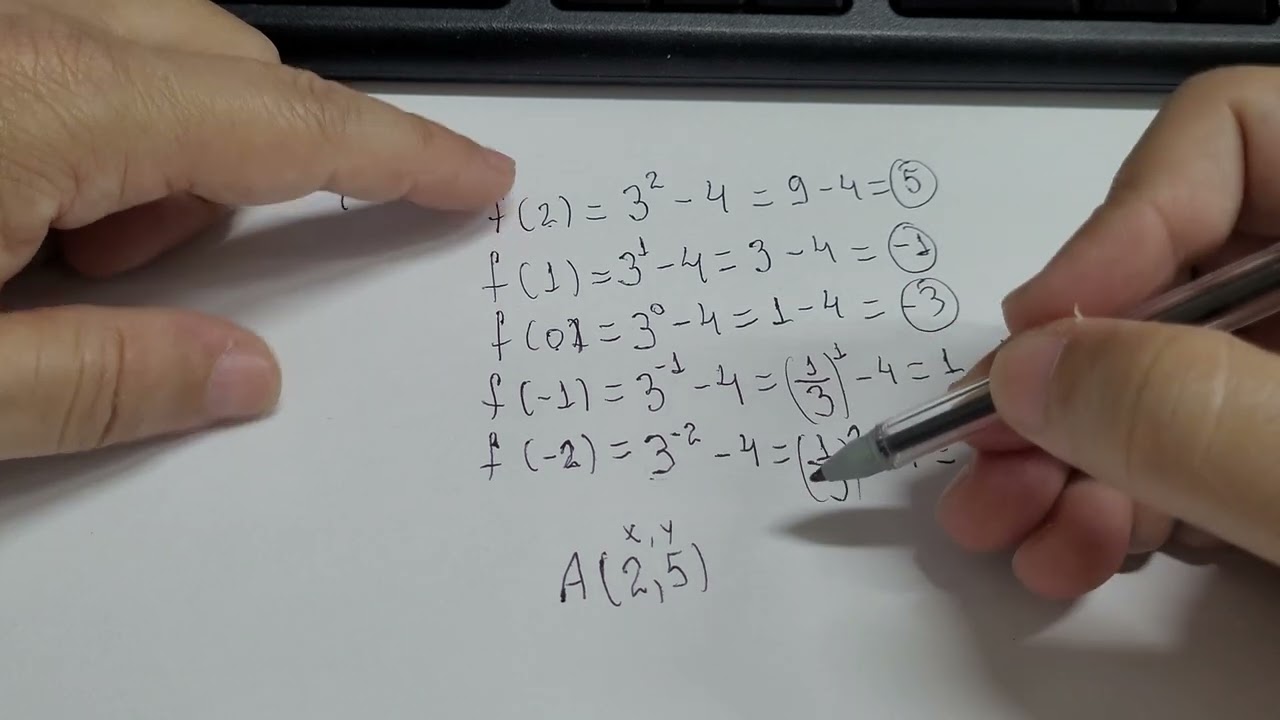 f(2) = 3² - 4 = 9 - 4 = 5
f(1) = 3¹ - 4 = 3 - 4 = -1
f(0) = 3⁰ - 4 = 1 - 4 = -3
f(-1) = 3⁻¹ - 4 = (1/3)¹ - 4 = 1
f(-2) = 3⁻² - 4 = (1/3)
x, y
A(2,5)